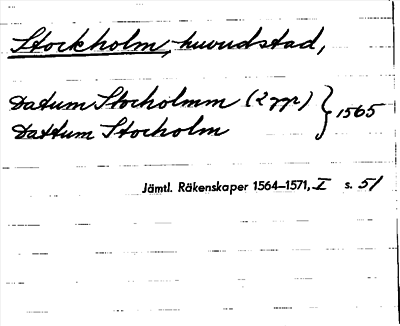 Stockholm, huvudstad,
Datum Stocholmm (2 ggr) } 1565
Dattum Stocholm
Jämtl. Räkenskaper 1564–1571, I s. 51